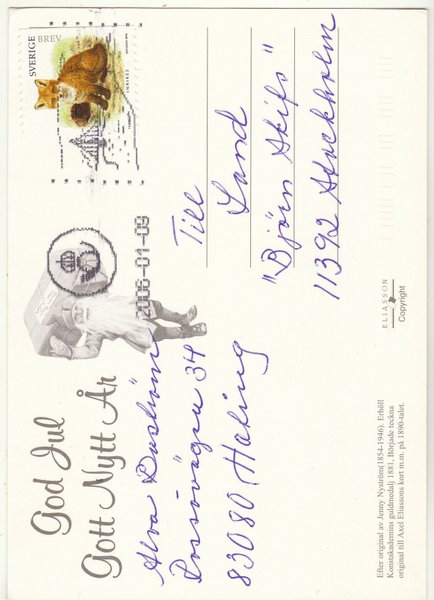 SVERIGE BREV
INRIKES
2006-01-09
God Jul
Gott Nytt År
Till
Land
"Björn Skifs"
11392 Stockholm
Alva
34
83080
ELIASSON
Copyright
Efter original av Jenny Nyström(1854-1946). Erhöll
Konstakademins guldmedalj 1881, Började teckna
original till Axel Eliassons kort m.m. på 1890-talet.